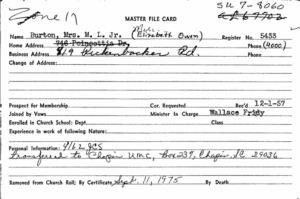 Zone 17
SU 7-8060
MASTER FILE CARD
Name Burton, Mrs. M. L. Jr. (Elizabeth Owen)
Register No. 5433
Home Address 748 Poinsettia Dr.
Phone (4000)
Business Address 819 Rickenbacker Rd.
Phone
Change of Address:
Prospect for Membership
Cor. Requested
Rec'd 12-1-57
Joined by Vows
Minister In Charge Wallace Fridy
Enrolled in Church School: Dept.
Class
Experience in work of following Nature:
Personal Information: 9/62 JCS
transferred to Chapin UMC, Box 239, Chapin, SC 29036
Removed from Church Roll: By Certificate Sept. 11, 1975
By Death